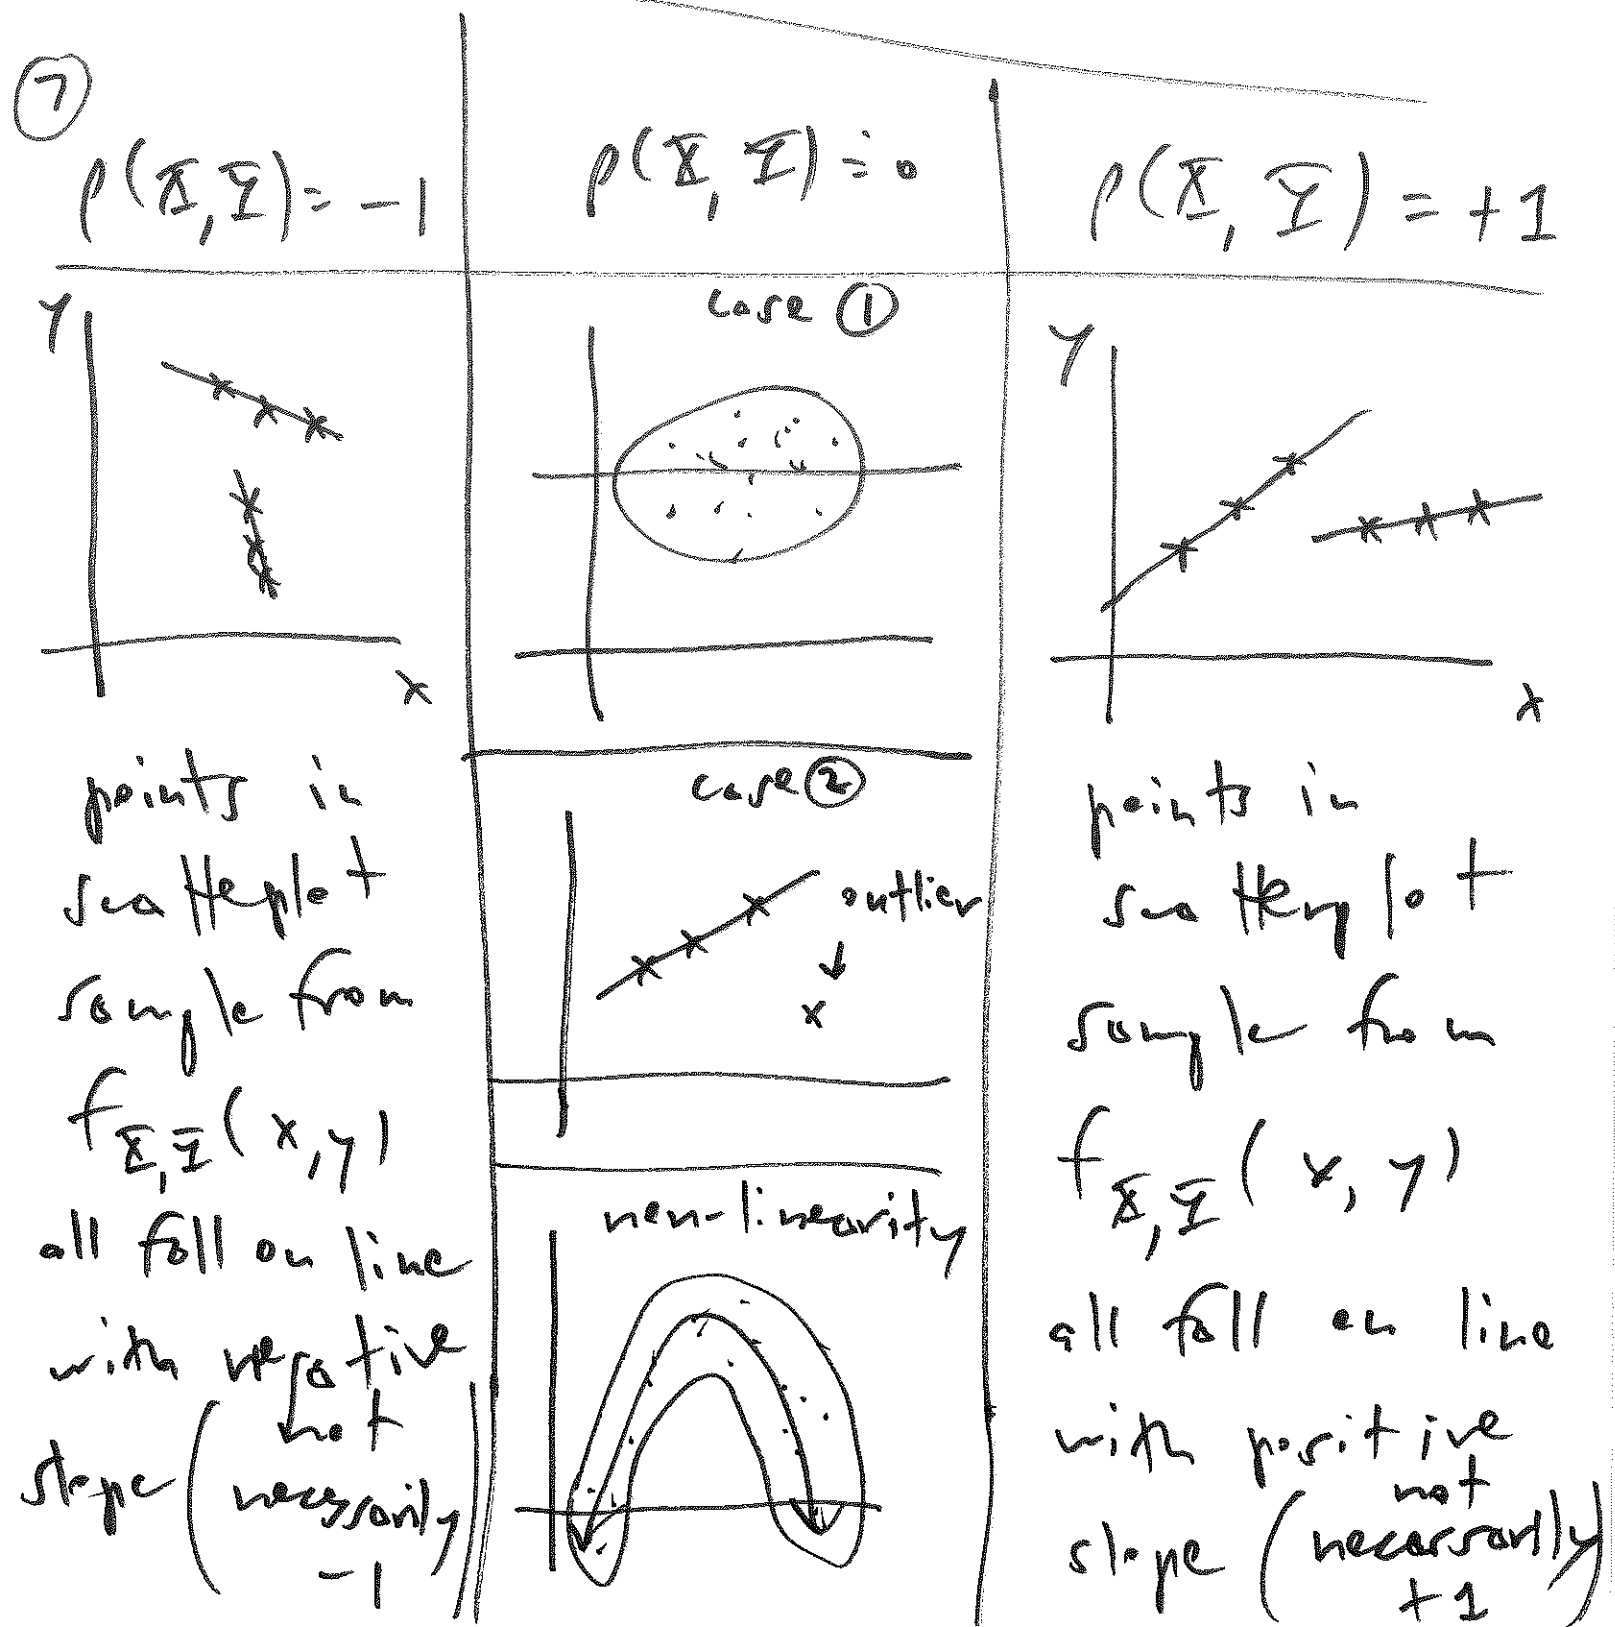 7
ρ(X, Y) = -1
y
x
points in
scatterplot
sample from
f X, Y (x, y)
all fall on line
with negative
slope (not
necessarily
-1)
ρ(X, Y) = 0
case 1
case 2
outlier
↓
x
non-linearity
ρ(X, Y) = +1
y
x
points in
scatterplot
sample from
f X, Y (x, y)
all fall on line
with positive
slope (not
necessarily
+1)